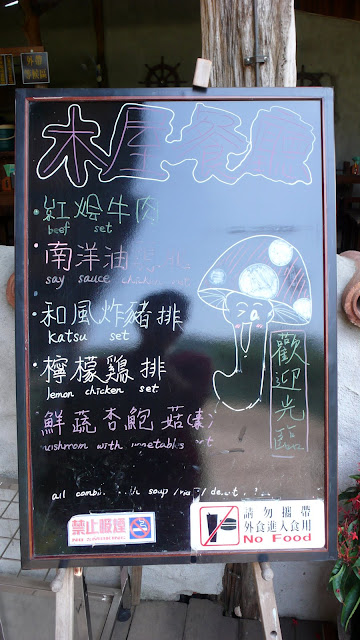 木屋餐廳
紅燴牛肉
beef set
南洋油
say sauce
和風炸豬排
katsu set
檸檬鷄排
lemon chicken set
鮮蔬杏鮑菇(素)
mushroom with vegetables set
all with soup
歡迎光臨
禁止吸煙
請勿攜帶
外食進入食用
No Food